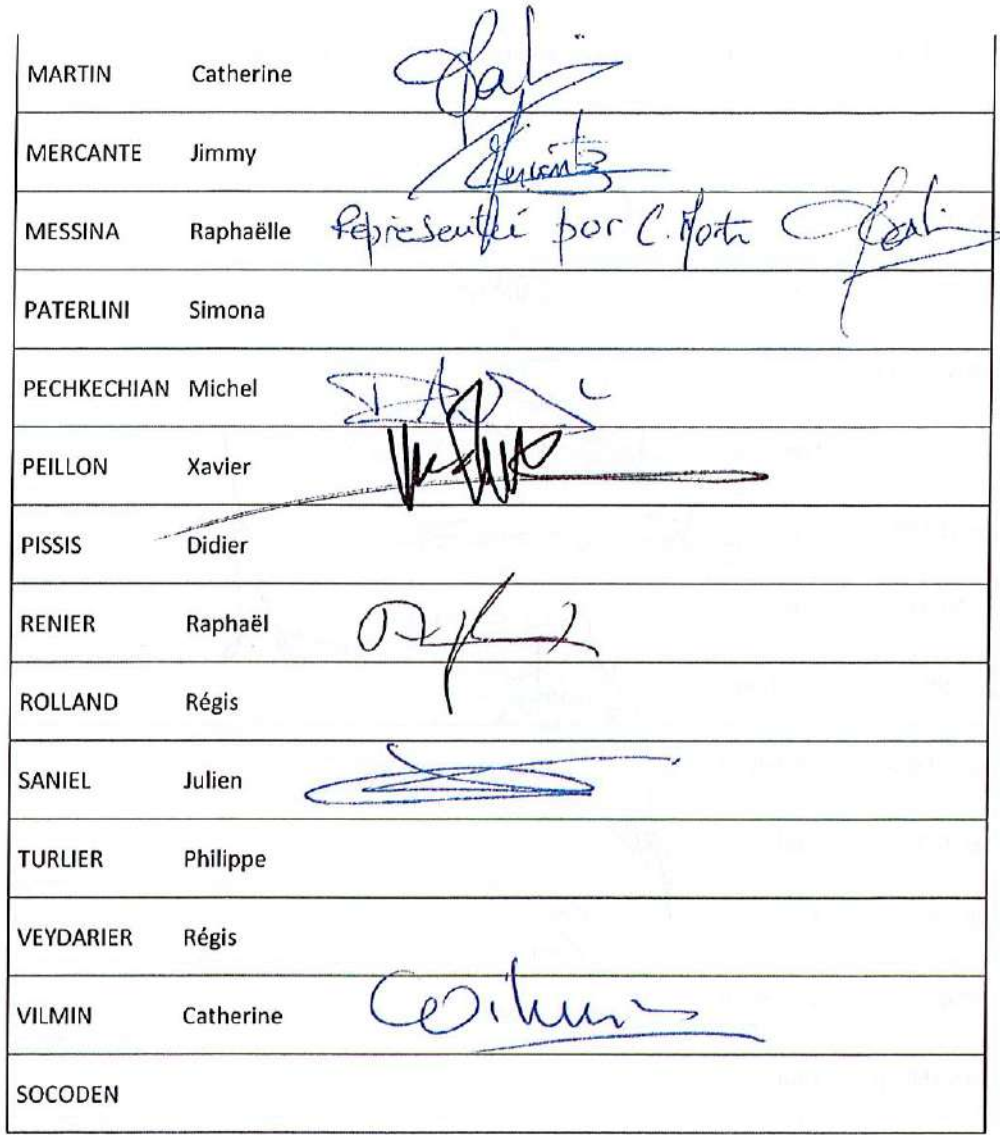 MARTIN Catherine
MERCANTE Jimmy
MESSINA Raphaëlle Représentée par C. Martin
PATERLINI Simona
PECHKECHIAN Michel
PEILLON Xavier
PISSIS Didier
RENIER Raphaël
ROLLAND Régis
SANIEL Julien
TURLIER Philippe
VEYDARIER Régis
VILMIN Catherine
SOCODEN